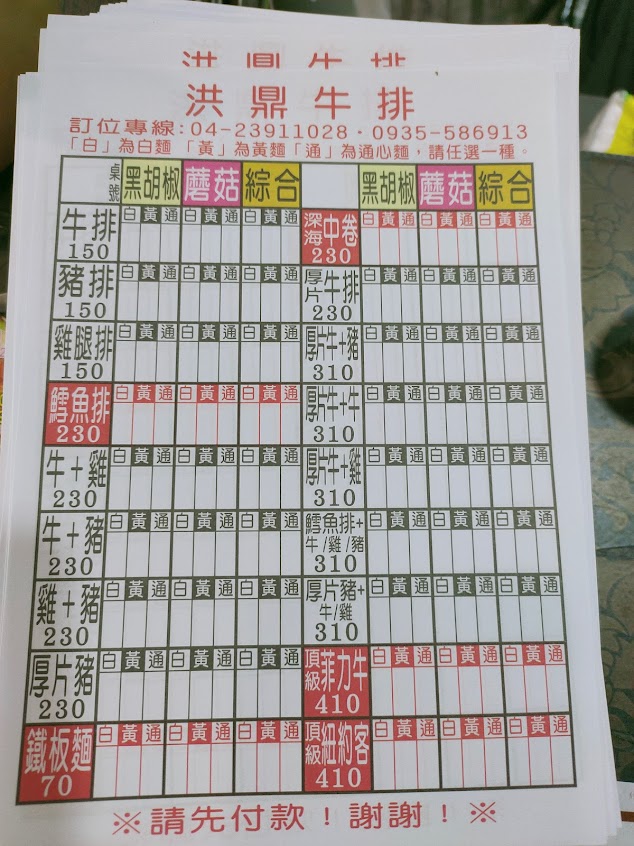 洪鼎牛排
洪鼎牛排
訂位專線:04-23911028・0935-586913
「白」為白麵 「黃」為黃麵「通」為通心麵，請任選一種。
桌號 黑胡椒 蘑菇 綜合 黑胡椒 蘑菇 綜合
牛排 150 白 黃 通 白 黃 通 白 黃 通 深海中卷 230 白 黃 通 白 黃 通 白 黃 通
豬排 150 白 黃 通 白 黃 通 白 黃 通 厚片牛排 230 白 黃 通 白 黃 通 白 黃 通
雞腿排 150 白 黃 通 白 黃 通 白 黃 通 厚片牛+豬 310 白 黃 通 白 黃 通 白 黃 通
鱈魚排 230 白 黃 通 白 黃 通 白 黃 通 厚片牛+牛 310 白 黃 通 白 黃 通 白 黃 通
牛+雞 230 白 黃 通 白 黃 通 白 黃 通 厚片牛+雞 310 白 黃 通 白 黃 通 白 黃 通
牛+豬 230 白 黃 通 白 黃 通 白 黃 通 鱈魚排+牛/雞/豬 310 白 黃 通 白 黃 通 白 黃 通
雞+豬 230 白 黃 通 白 黃 通 白 黃 通 厚片豬+牛/雞 310 白 黃 通 白 黃 通 白 黃 通
厚片豬 230 白 黃 通 白 黃 通 白 黃 通 頂級菲力牛 410 白 黃 通 白 黃 通 白 黃 通
鐵板麵 70 白 黃 通 白 黃 通 白 黃 通 頂級紐約客 410 白 黃 通 白 黃 通 白 黃 通
※請先付款！謝謝！※